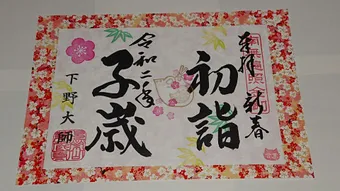 奉拝 新春
初詣
令和二年
子歳
下野大師